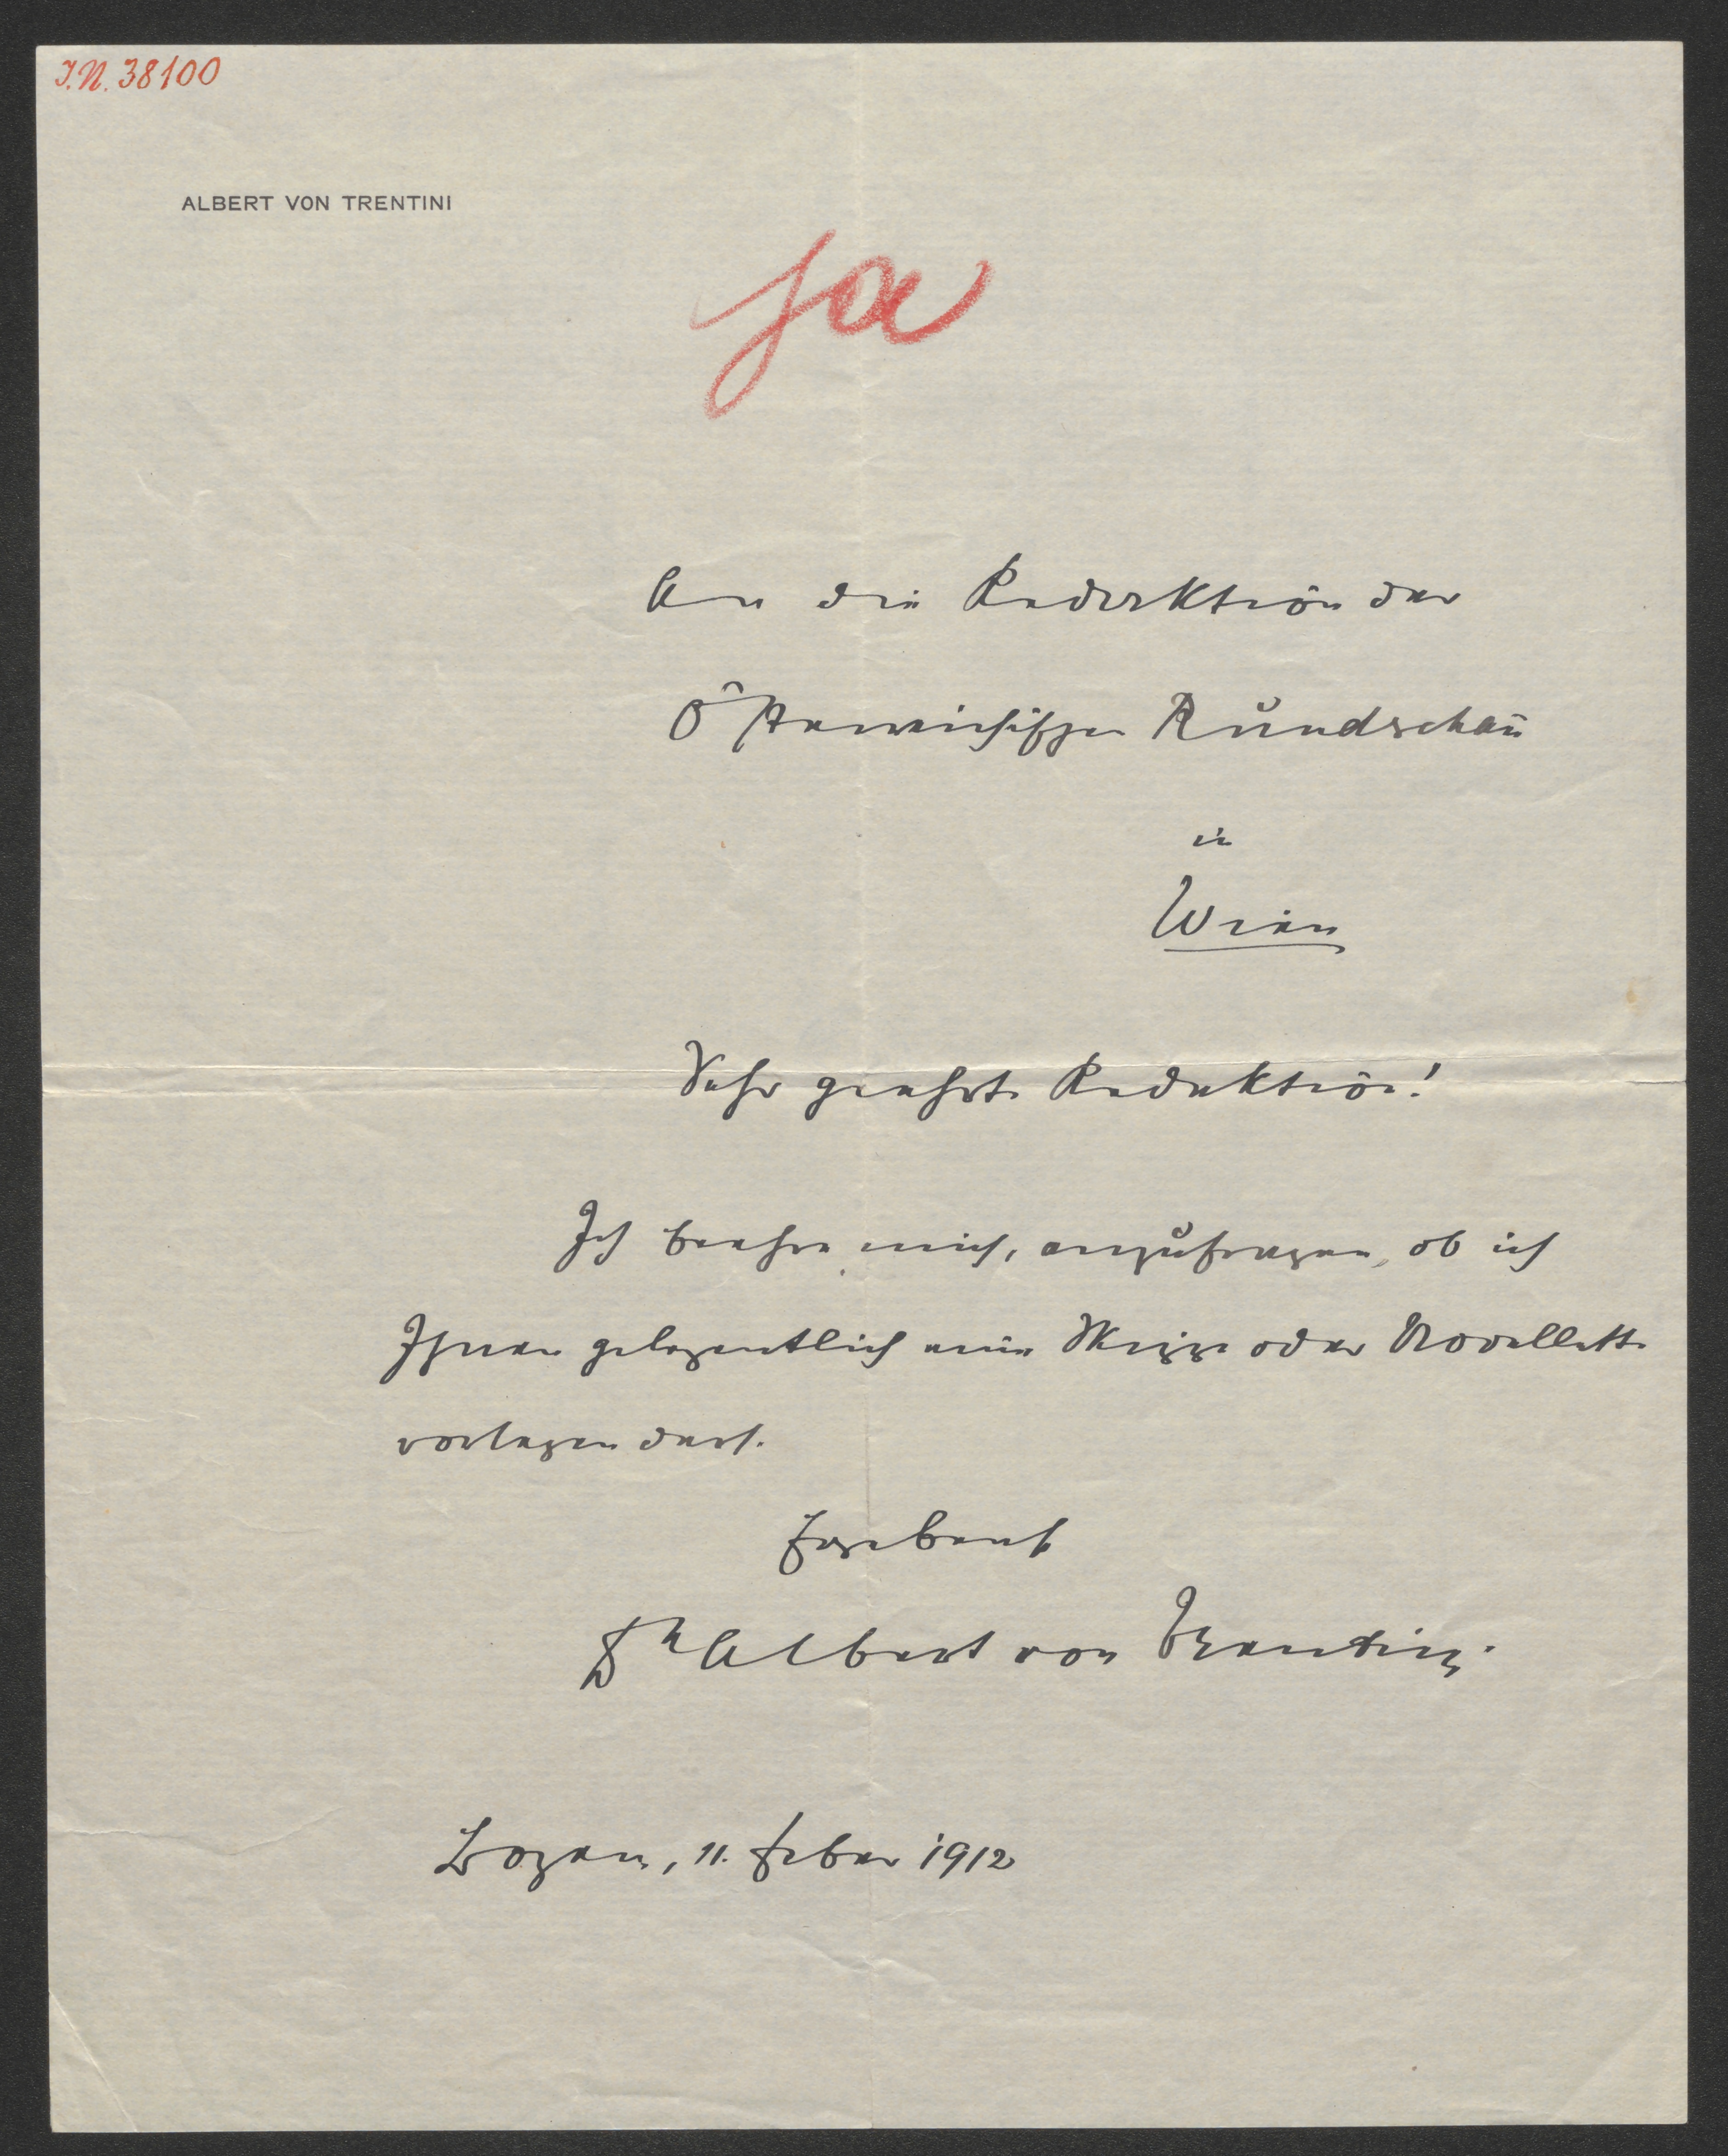 I.N. 38100
ALBERT VON TRENTINI
ja
An die Redaktion der
Österreichischen Rundschau
in
Wien
Sehr geehrte Redaktion!
Ich beehre mich, anzufragen, ob ich
Ihnen gelegentlich eine Skizze oder Novellette
vorlegen darf.
Ergebenst
Dr Albert von Trentini.
Bozen, 11. Feber 1912